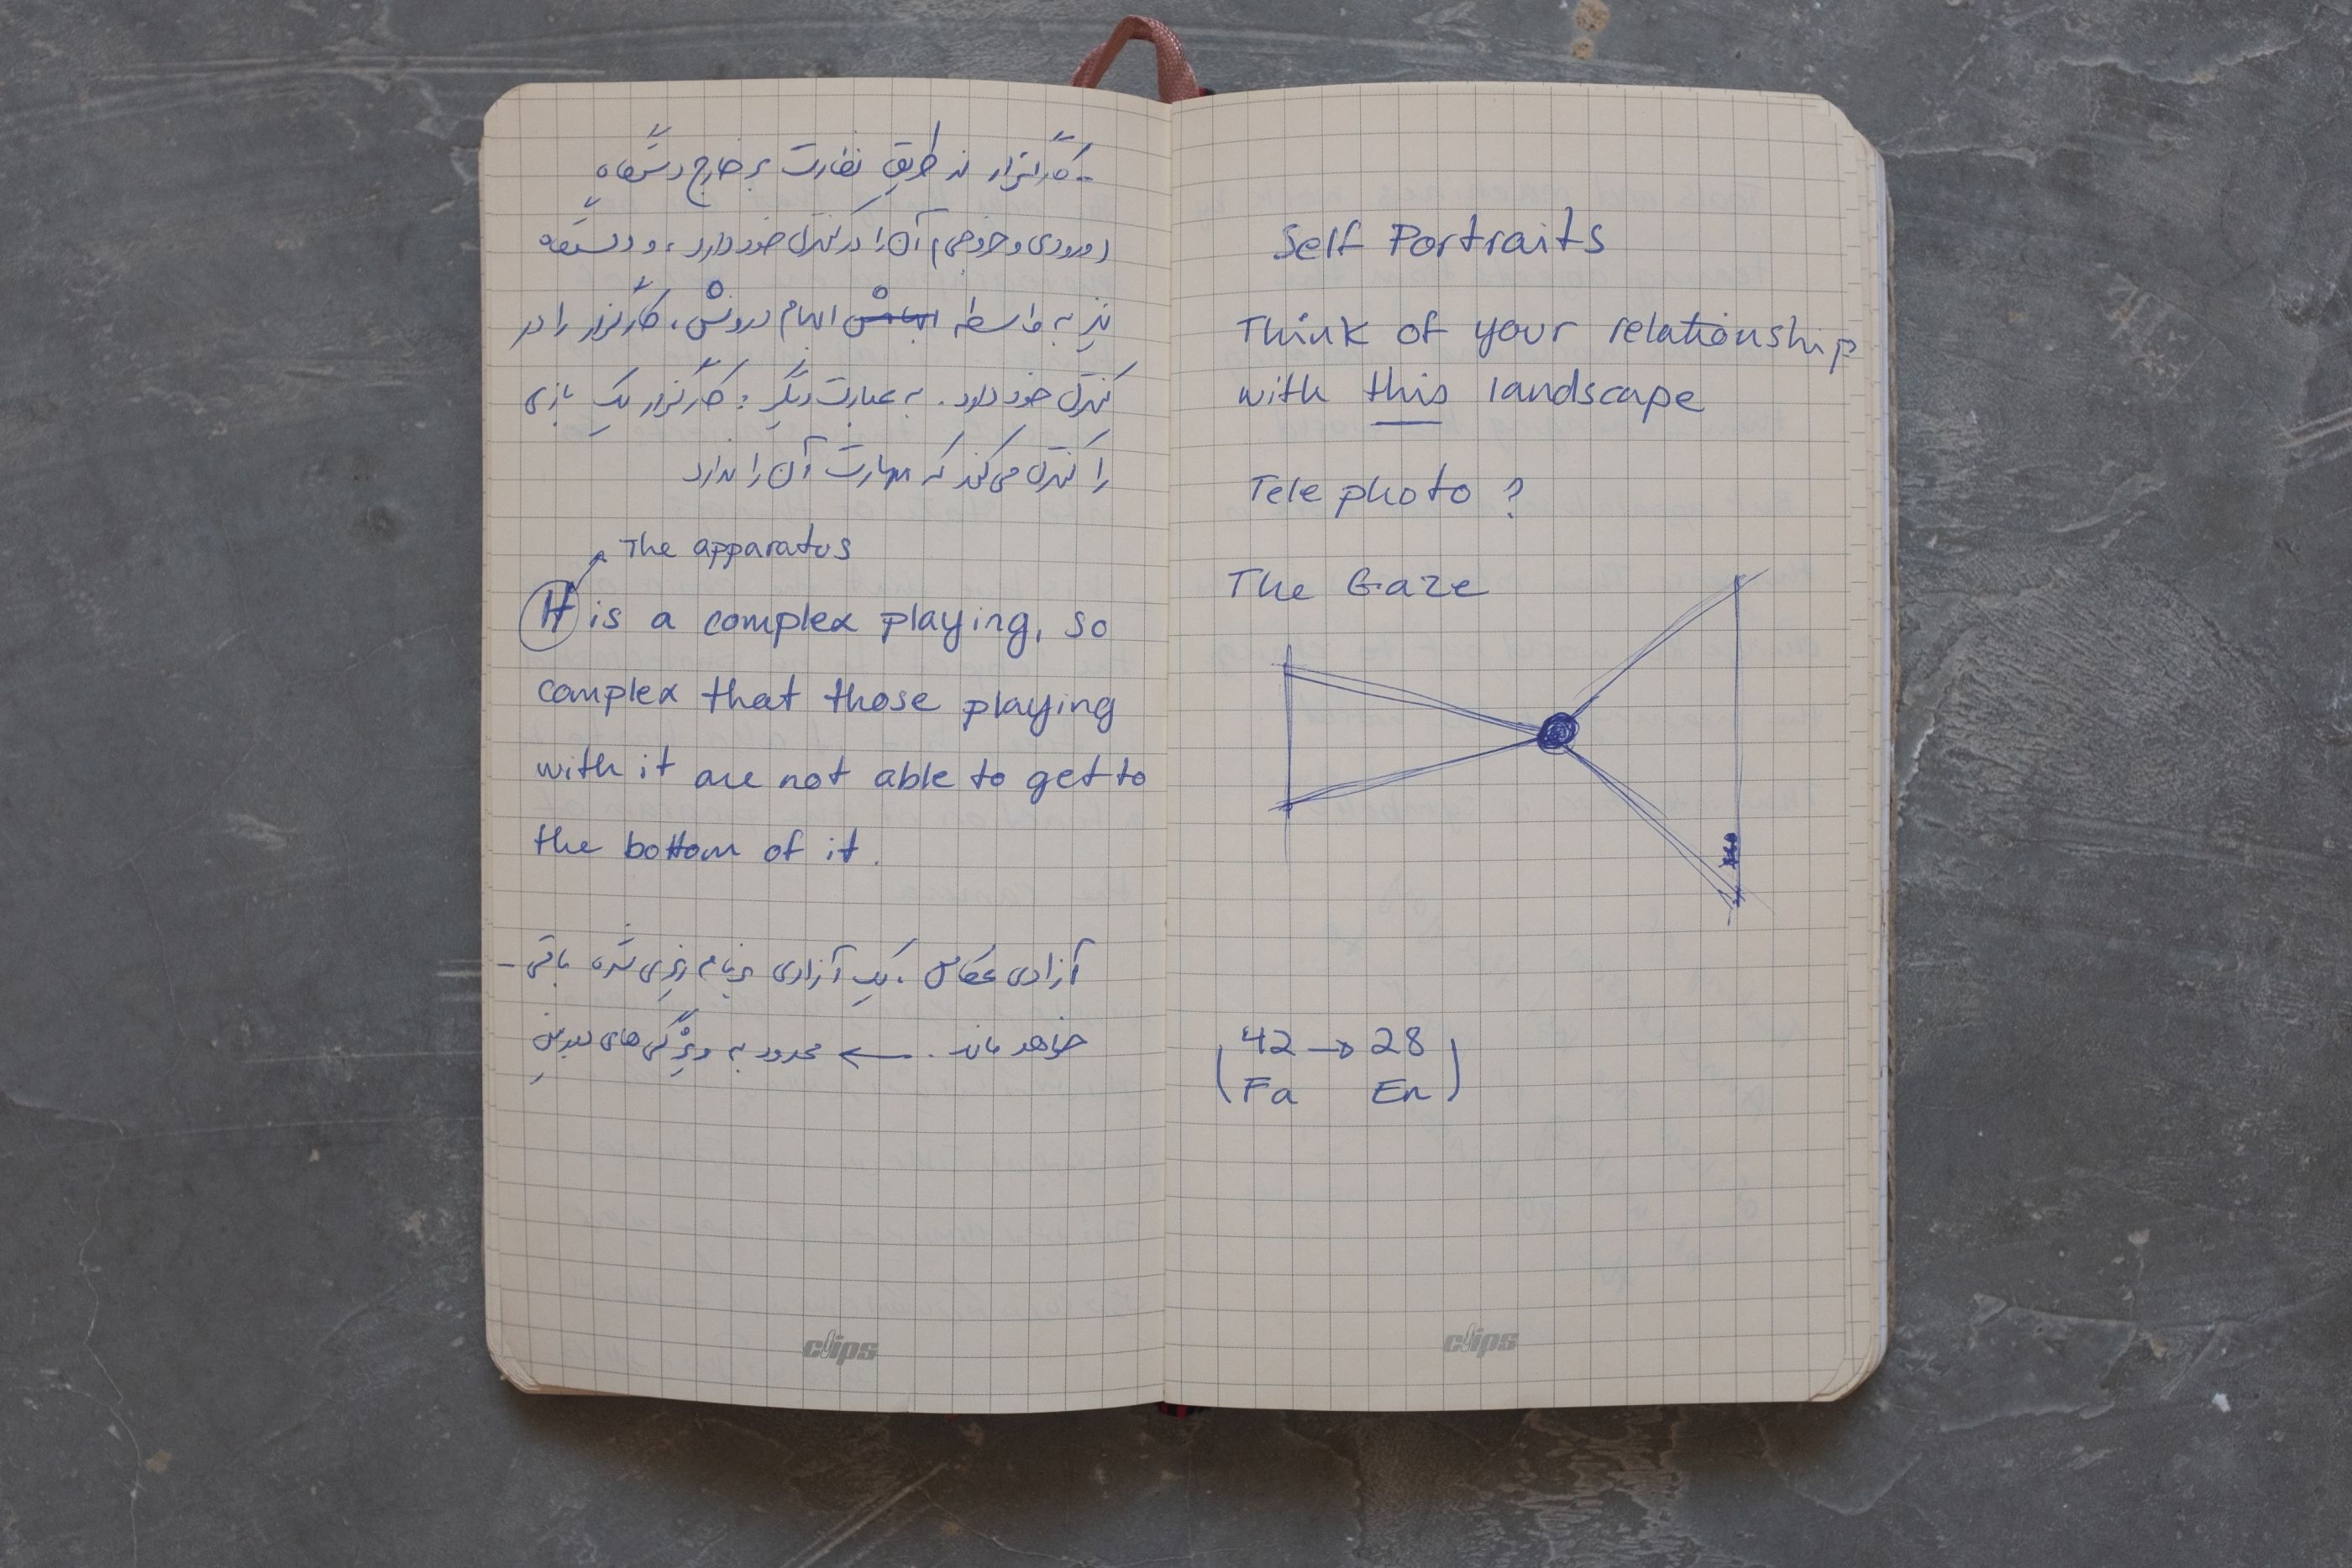 - کارگزار از طریق نظارت بر خارج دستگاه
(ورودی و خروجی) آن را در کنترل خود دارد، و دستگاه
نیز به واسطه ابهام درونش، کارگزار را در
کنترل خود دارد. به عبارت دیگر: کارگزار یک بازی
را کنترل می‌کند که مهارت آن را ندارد
The apparatus
It is a complex playing, so
complex that those playing
with it are not able to get to
the bottom of it.
آزادی عکاس، یک آزادی برنامه‌ریزی شده باقی-
خواهد ماند. ← محدود به ویژگی‌های دوربین
Self Portraits
Think of your relationship
with this landscape
Tele photo ?
The Gaze
(42 → 28
Fa En)
clips
clips